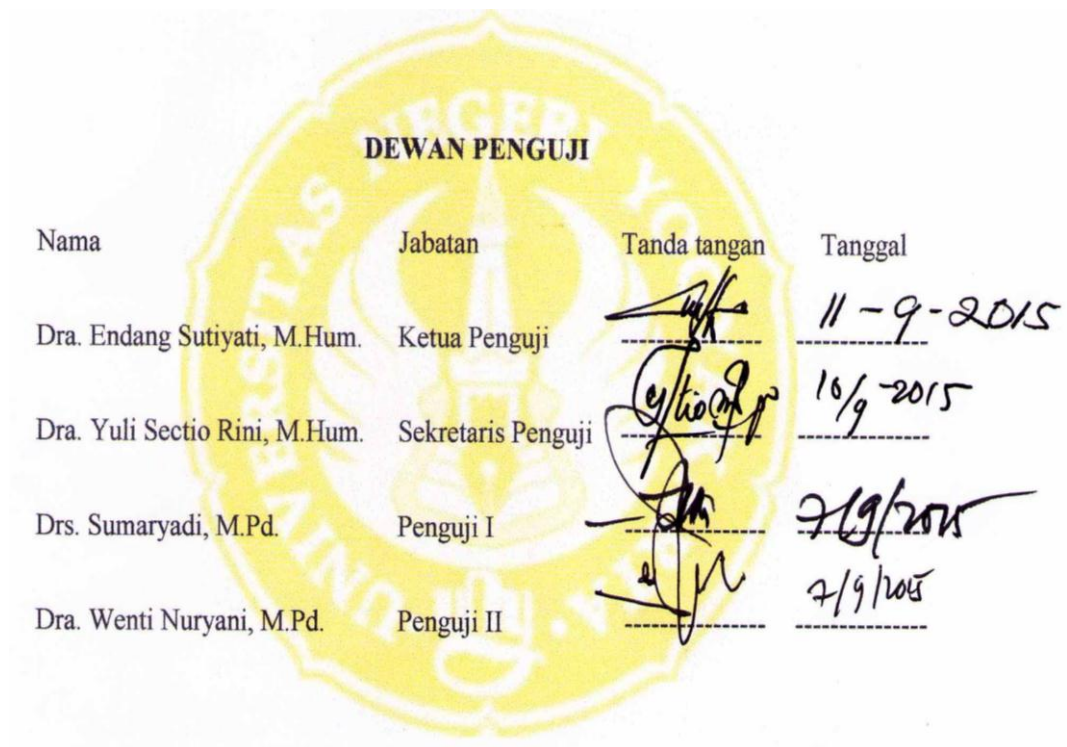 UNIVERSITAS NEGERI YOGYA
DEWAN PENGUJI
Nama Jabatan Tanda tangan Tanggal
Dra. Endang Sutiyati, M.Hum. Ketua Penguji 11-9-2015
Dra. Yuli Sectio Rini, M.Hum. Sekretaris Penguji 10/9-2015
Drs. Sumaryadi, M.Pd. Penguji I 7/9/2015
Dra. Wenti Nuryani, M.Pd. Penguji II 7/9/2015